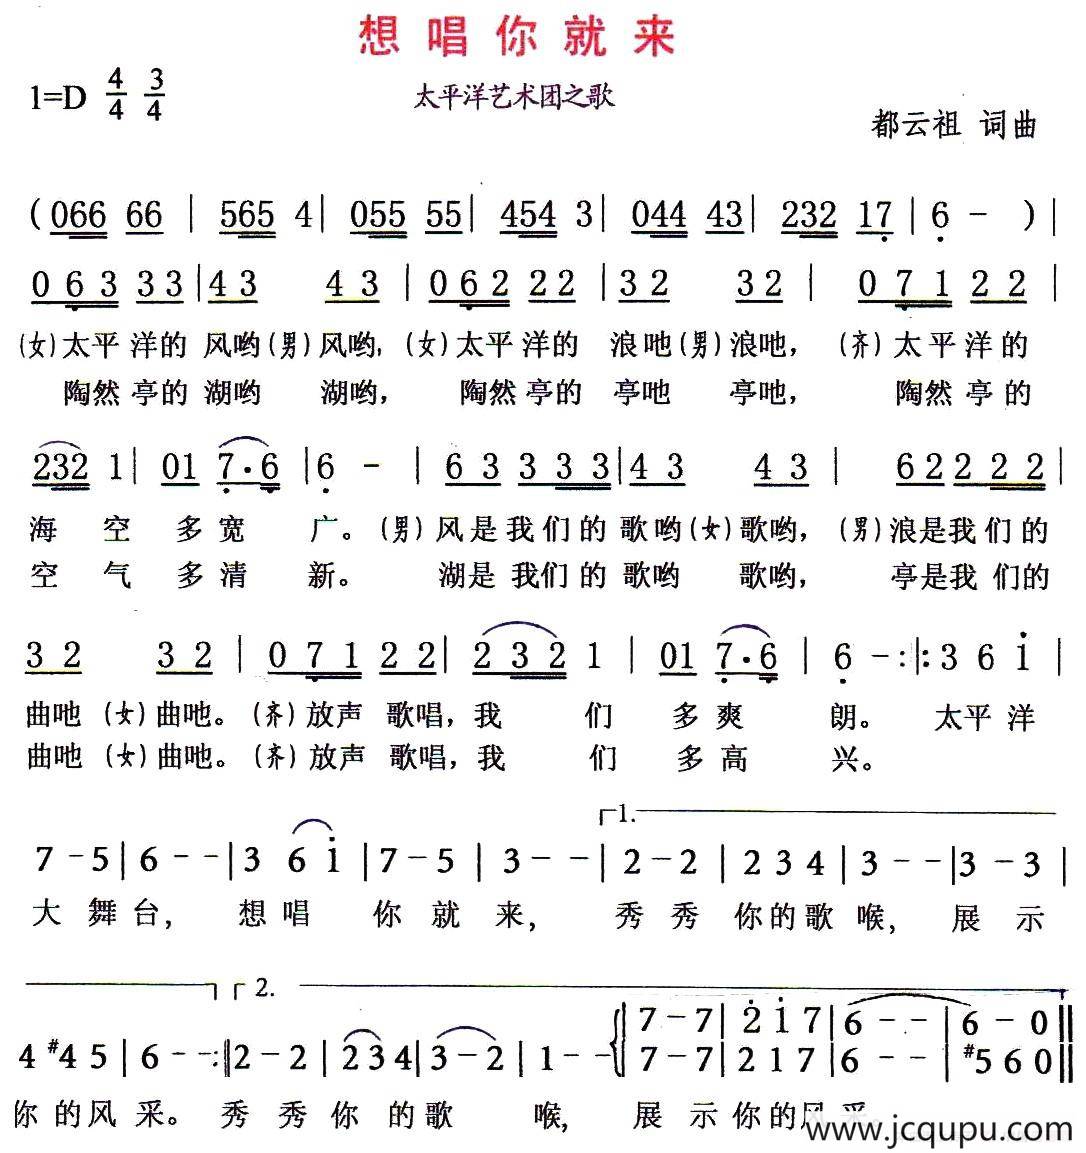 想唱你就来
1=D 4/4 3/4
太平洋艺术团之歌
都云祖 词曲
( 066 66 | 565 4 | 055 55 | 454 3 | 044 43 | 232 17 | 6 - ) |
0 6 3 3 3 | 4 3 4 3 | 0 6 2 2 2 | 3 2 3 2 | 0 7 1 2 2 |
(女)太平洋的 风哟(男)风哟, (女)太平洋的 浪吔(男)浪吔, (齐)太平洋的
陶然亭的 湖哟 湖哟, 陶然亭的 亭吔 亭吔, 陶然亭的
232 1 | 01 7·6 | 6 - | 6 3 3 3 3 | 4 3 4 3 | 6 2 2 2 2 |
海 空 多 宽 广。(男)风是我们的 歌哟(女)歌哟, (男)浪是我们的
空 气 多 清 新。 湖是我们的 歌哟 歌哟, 亭是我们的
3 2 3 2 | 0 7 1 2 2 | 2 3 2 1 | 01 7·6 | 6 - :|: 3 6 i |
曲吔 (女)曲吔。(齐)放声 歌唱,我 们 多 爽 朗。 太平洋
曲吔 (女)曲吔。(齐)放声 歌唱,我 们 多 高 兴。
1.
7 - 5 | 6 - - | 3 6 i | 7 - 5 | 3 - - | 2 - 2 | 2 3 4 | 3 - - | 3 - 3 |
大 舞 台, 想 唱 你 就 来, 秀 秀 你 的 歌 喉, 展 示
2.
7 - 7 | 2 i 7 | 6 - - | 6 - 0 ||
4 #4 5 | 6 - - :|| 2 - 2 | 2 3 4 | 3 - 2 | 1 - - | 7 - 7 | 2 1 7 | 6 - - | #5 6 0 ||
你 的 风 采。 秀 秀 你 的 歌 喉, 展 示 你 的
www.jcqupu.com